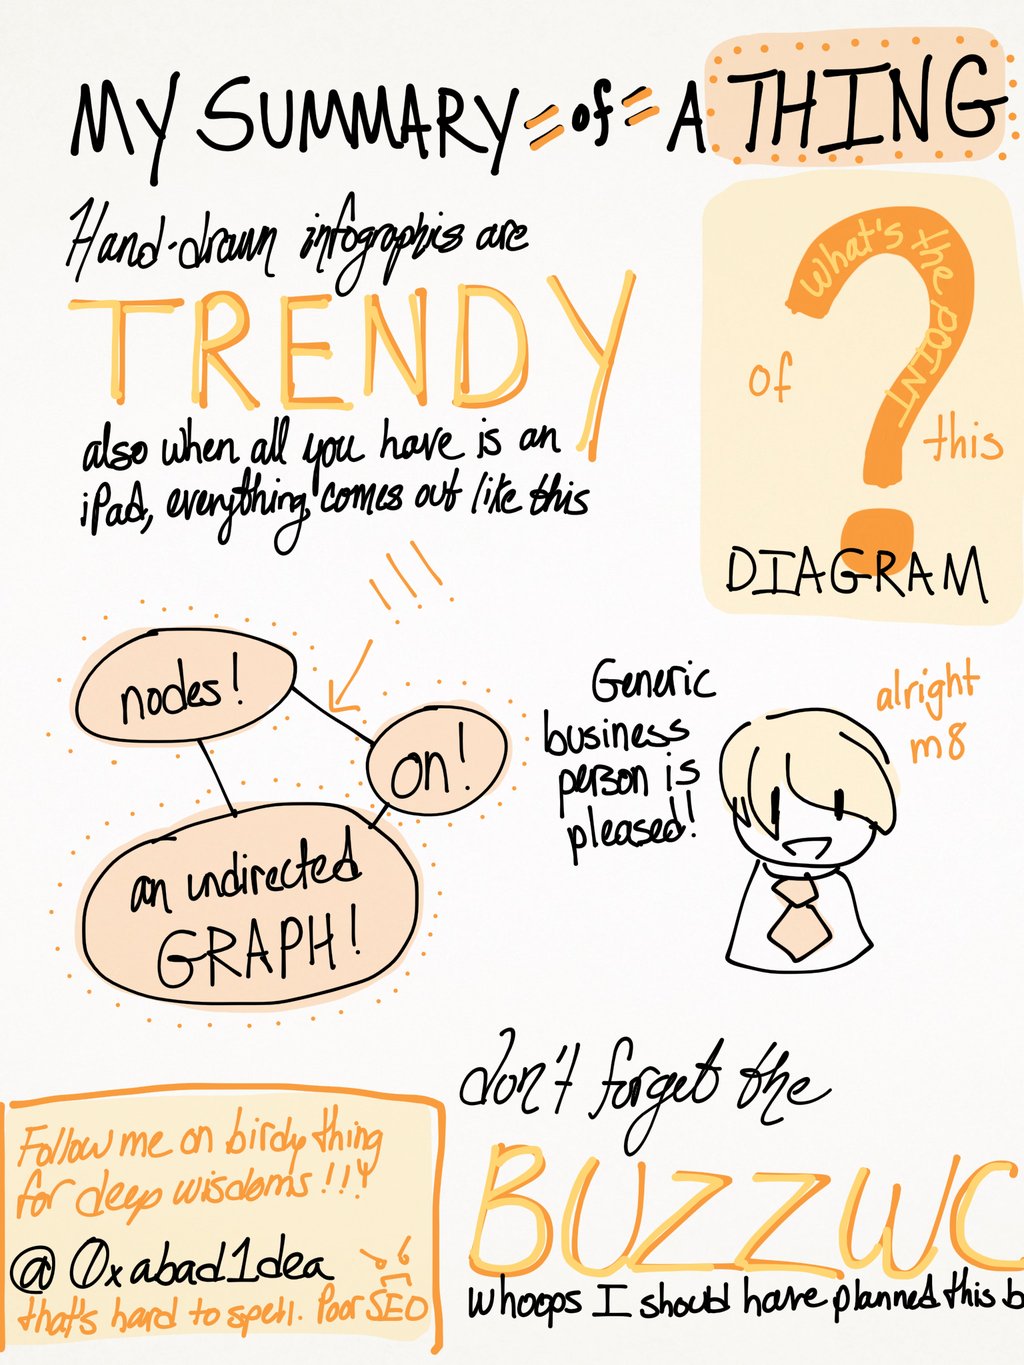 MY SUMMARY = of = A THING
Hand-drawn infographis are
TRENDY
also when all you have is an
iPad, everything comes out like this
What's the POINT
of
this
DIAGRAM
nodes!
on!
an undirected
GRAPH!
Generic
business
person is
pleased!
alright
m8
don't forget the
BUZZWO
whoops I should have planned this b
Follow me on birdy thing
for deep wisdoms!!!
@0xabad1dea
that's hard to spell. Poor SEO